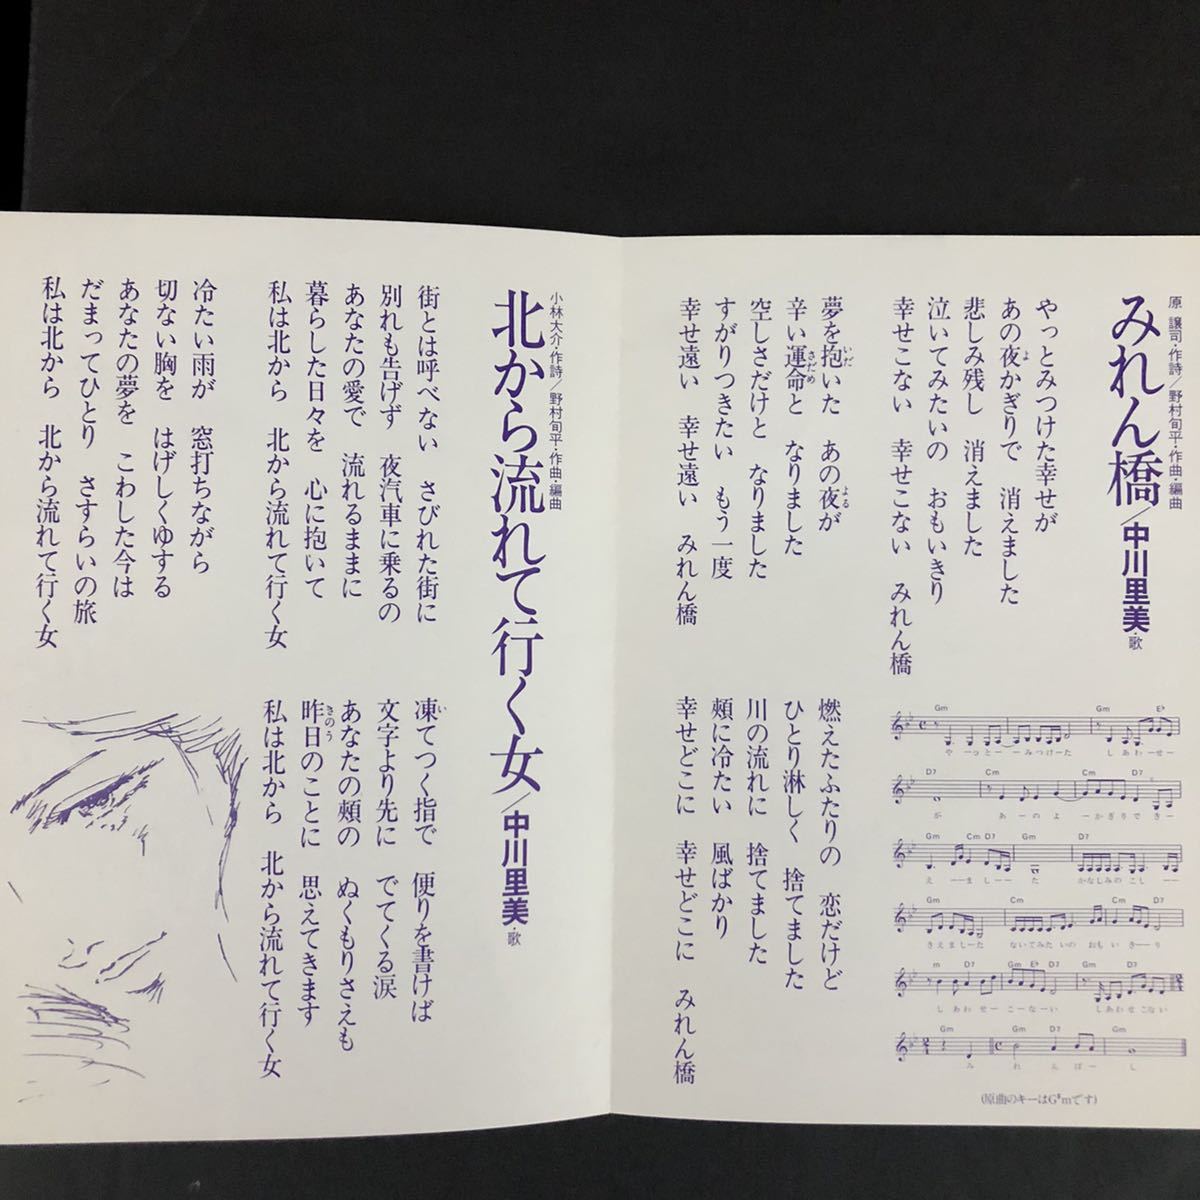 みれん橋/中川里美・歌
原 譲司・作詩/野村旬平・作曲・編曲
やっとみつけた幸せが
あの夜かぎりで 消えました
よ
悲しみ残し 消えました
泣いてみたいの おもいきり
幸せこない 幸せこない みれん橋
夢を抱いた あの夜が
いだ
よる
辛い運命と なりました
さだめ
空しさだけと なりました
すがりつきたい もう一度
幸せ遠い 幸せ遠い みれん橋
燃えたふたりの 恋だけど
ひとり淋しく 捨てました
川の流れに 捨てました
頬に冷たい 風ばかり
幸せどこに 幸せどこに みれん橋
Gm Gm E♭
やーっとーーみつけーた しあわーせー
D7 Cm Cm D7
が あーのよ ーかぎりでき ー
Gm Cm D7 Gm D7
えーーましーーた かなしみのこしーー
Gm Cm Cm D7
きえましーた ないてみたいの おもいきーり
m D7 Gm E♭ D7 Gm D7
しあわせーこーなーい しあわせこない
Gm Gm D7 Gm
みれんばーし
(原曲のキーはG♯mです)
北から流れて行く女/中川里美・歌
小林大介・作詩/野村旬平・作曲・編曲
街とは呼べない さびれた街に
別れも告げず 夜汽車に乗るの
あなたの愛で 流れるままに
暮らした日々を 心に抱いて
私は北から 北から流れて行く女
冷たい雨が 窓打ちながら
切ない胸を はげしくゆする
あなたの夢を こわした今は
だまってひとり さすらいの旅
私は北から 北から流れて行く女
凍てつく指で 便りを書けば
い
文字より先に でてくる涙
あなたの頬の ぬくもりさえも
昨日のことに 思えてきます
きのう
私は北から 北から流れて行く女